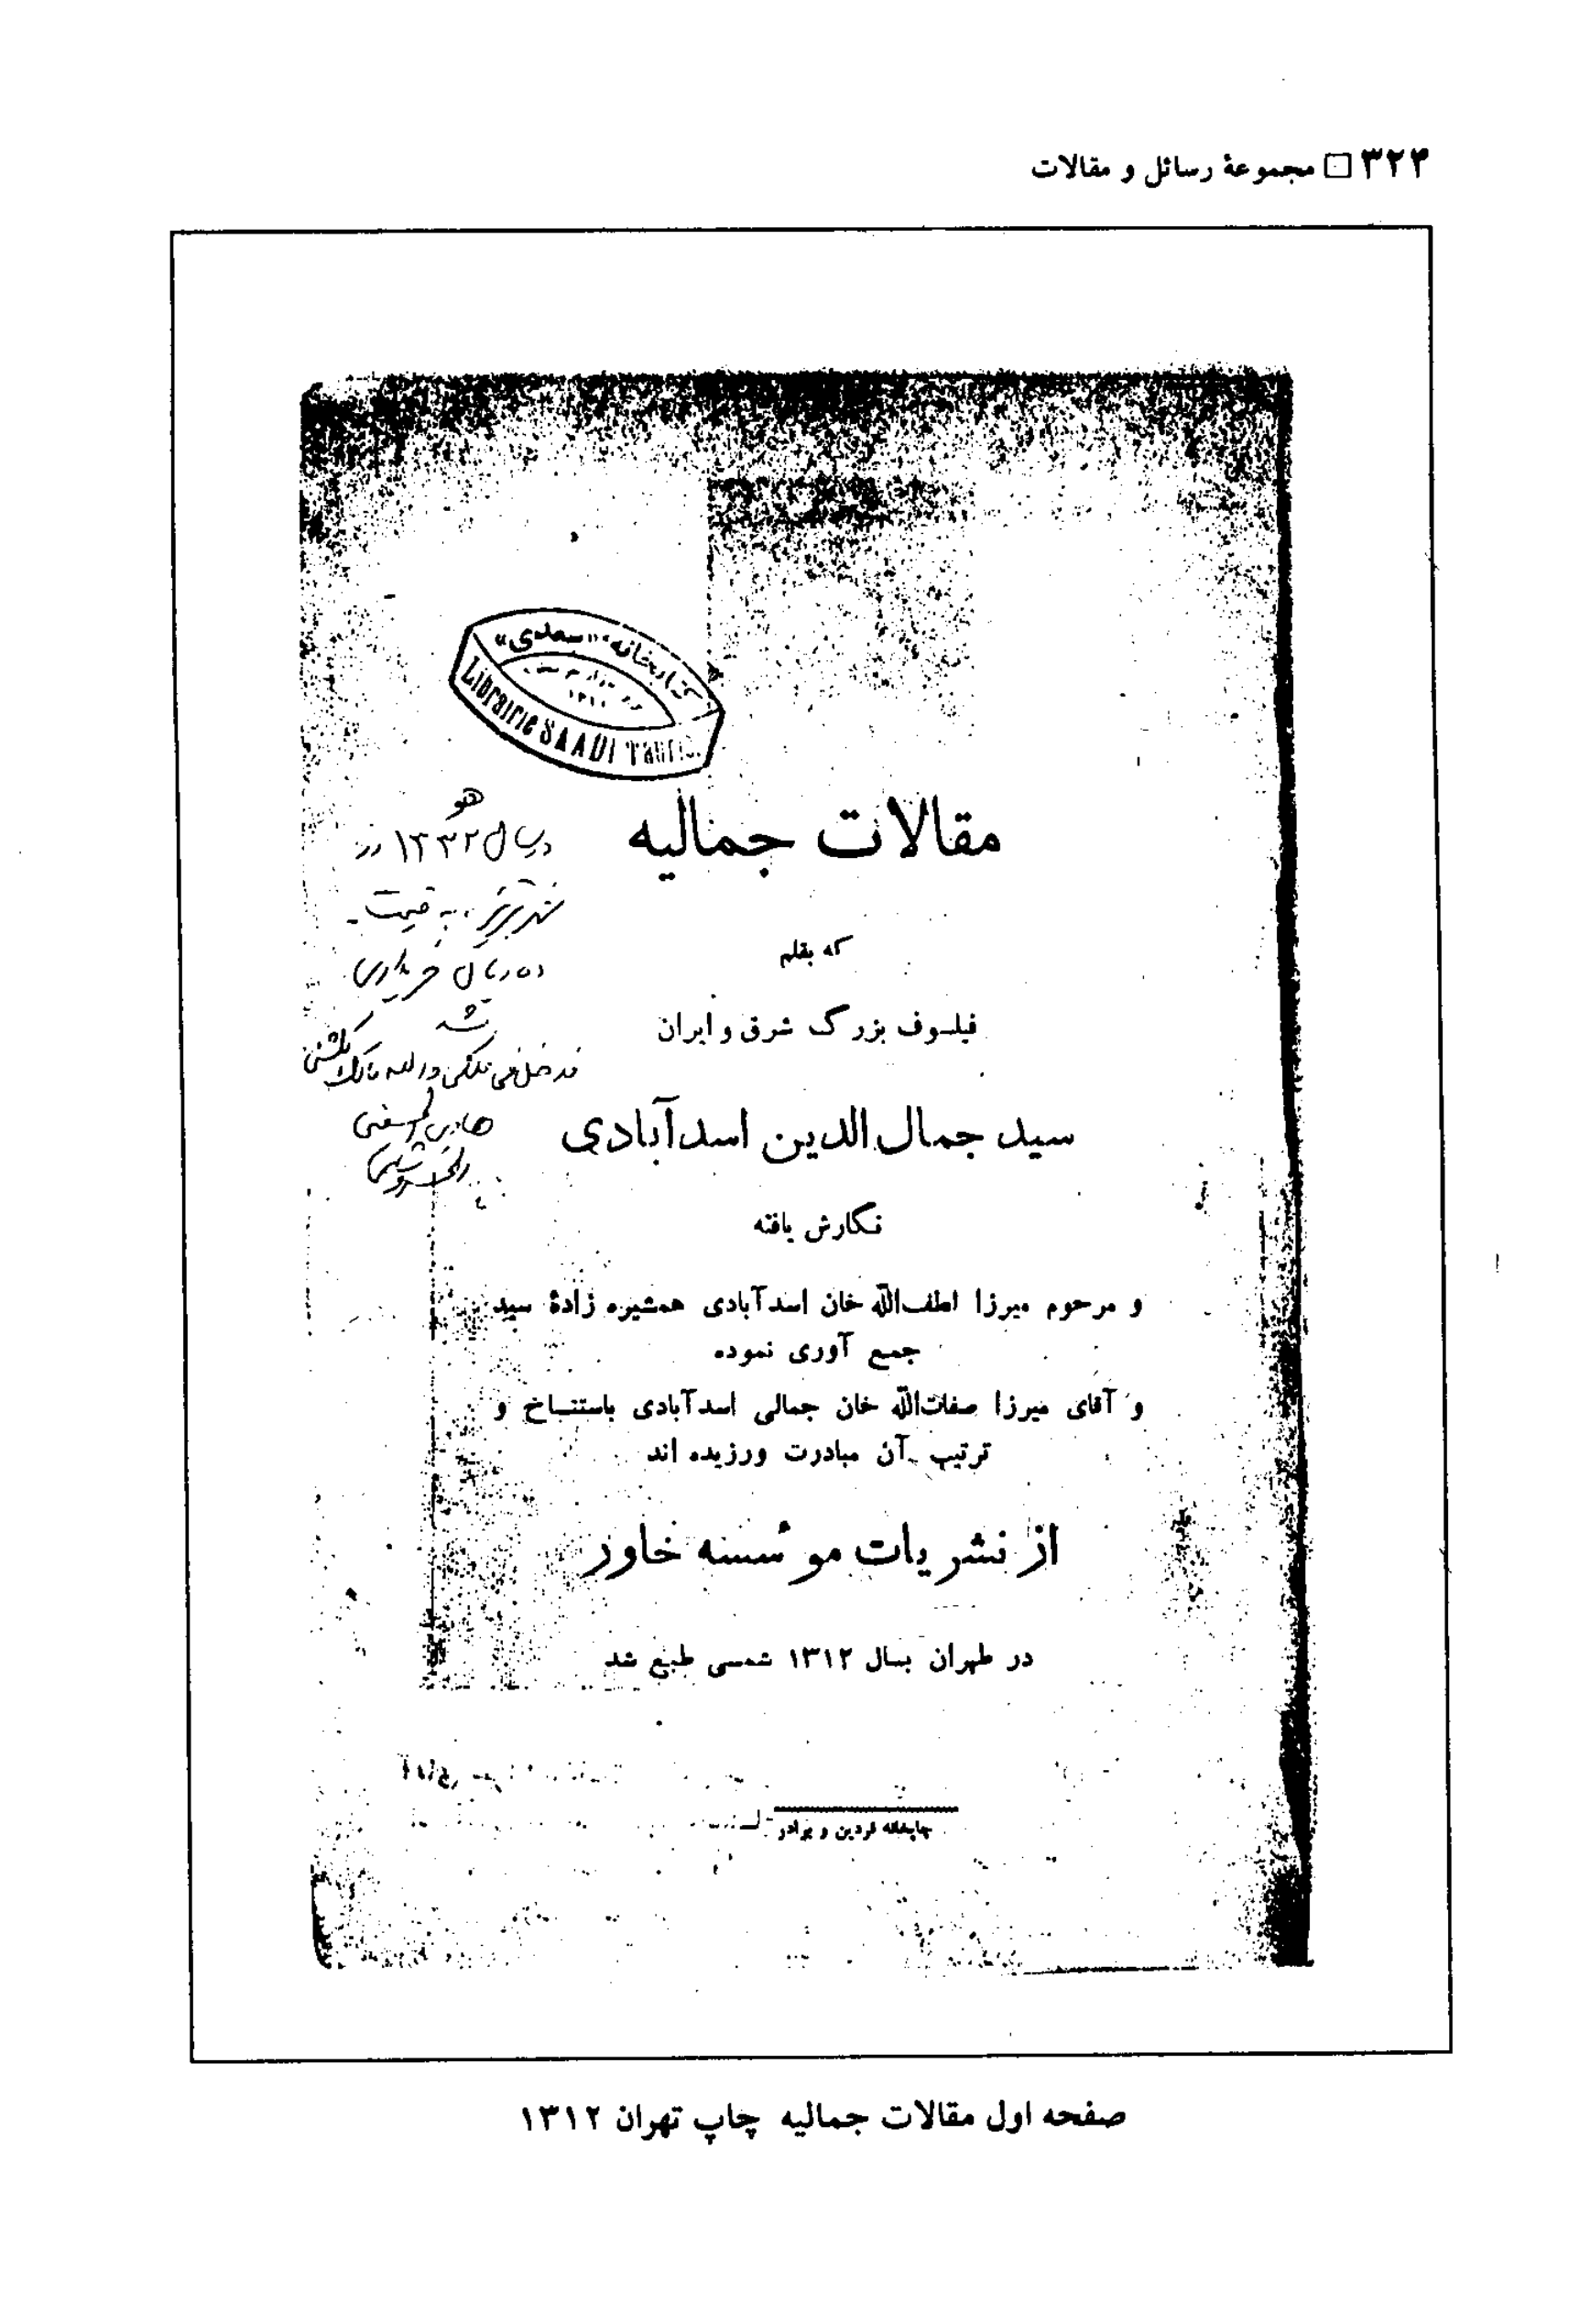 ۳۲۴ □ مجموعهٔ رسائل و مقالات
کتابخانه «سعدی»
Librairie SAADI
مقالات جمالیه
هو
در سال ۱۳۳۲ در
شهر تبریز به قیمت
ده ریال خریداری
شد
که بقلم
فیلسوف بزرگ شرق و ایران
سید جمال‌الدین اسدآبادی
نگارش یافته
و مرحوم میرزا لطف‌الله خان اسدآبادی همشیره زادهٔ سید
جمع آوری نموده
و آقای میرزا صفات‌الله خان جمالی اسدآبادی باستنساخ و
ترتیب آن مبادرت ورزیده اند
از نشریات مؤسسه خاور
در طهران بسال ۱۳۱۲ شمسی طبع شد
چاپخانه فردین و برادر
صفحه اول مقالات جمالیه چاپ تهران ۱۳۱۲